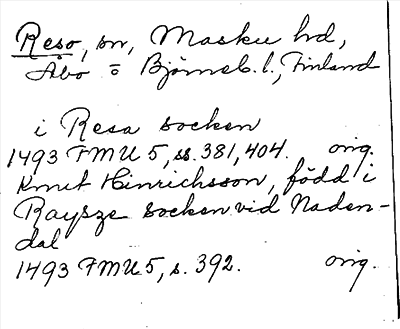 Reso, sn, Masku hd,
Åbo o Björneb. l., Finland
i Resa socken
1493 FMU 5, ss. 381, 404. orig.
Knut Hinrichsson, född i
Raysze socken vid Naden-
dal
1493 FMU 5, s. 392. orig.